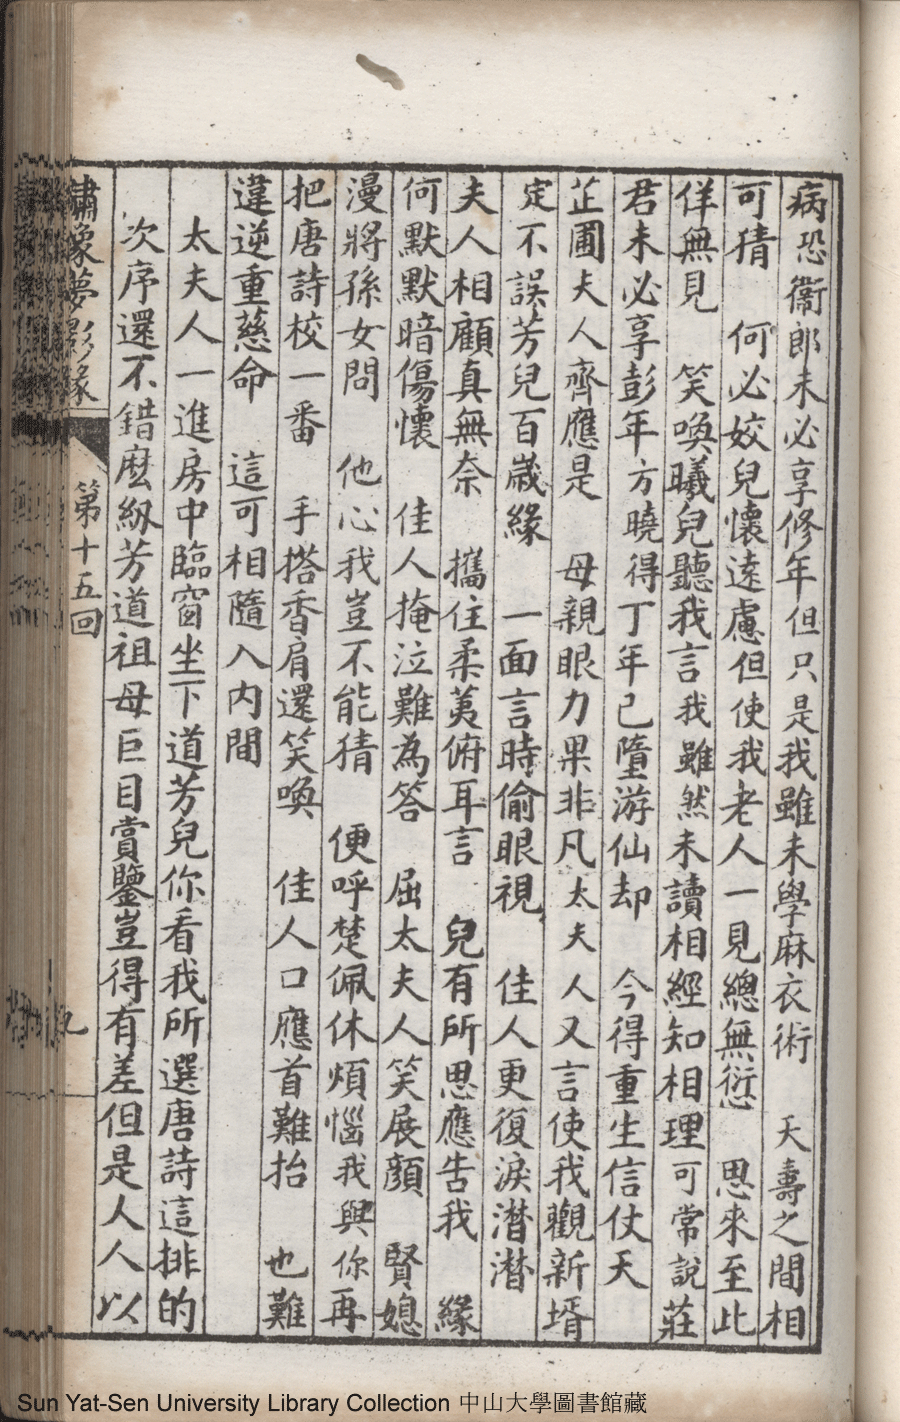 病恐衞郎未必享修年但只是我雖未學麻衣術　天壽之間相
可猜　何必姣兒懷遠慮但使我老人一見總無愆　思來至此
佯無見　笑喚曦兒聽我言我雖然未讀相經知相理可常說莊
君未必享彭年方曉得丁年已墮游仙却　今得重生信仗天
芷圃夫人齊應是　母親眼力果非凡太夫人又言使我觀新壻
定不誤芳兒百嵗緣　一面言時偷眼視　佳人更復淚潸潸
夫人相顧真無奈　攜住柔荑俯耳言　兒有所思應告我　緣
何默默暗傷懷　佳人掩泣難為答　屈太夫人笑展顏　賢媳
漫將孫女問　他心我豈不能猜　便呼楚佩休煩惱我與你再
把唐詩校一番　手搭香肩還笑喚　佳人口應首難抬　也難
違逆重慈命　這可相隨入內間
太夫人一進房中臨窗坐下道芳兒你看我所選唐詩這排的
次序還不錯麽紉芳道祖母巨目賞鑒豈得有差但是人人以
繡像夢影緣　第十五回　九
Sun Yat-Sen University Library Collection 中山大學圖書館藏